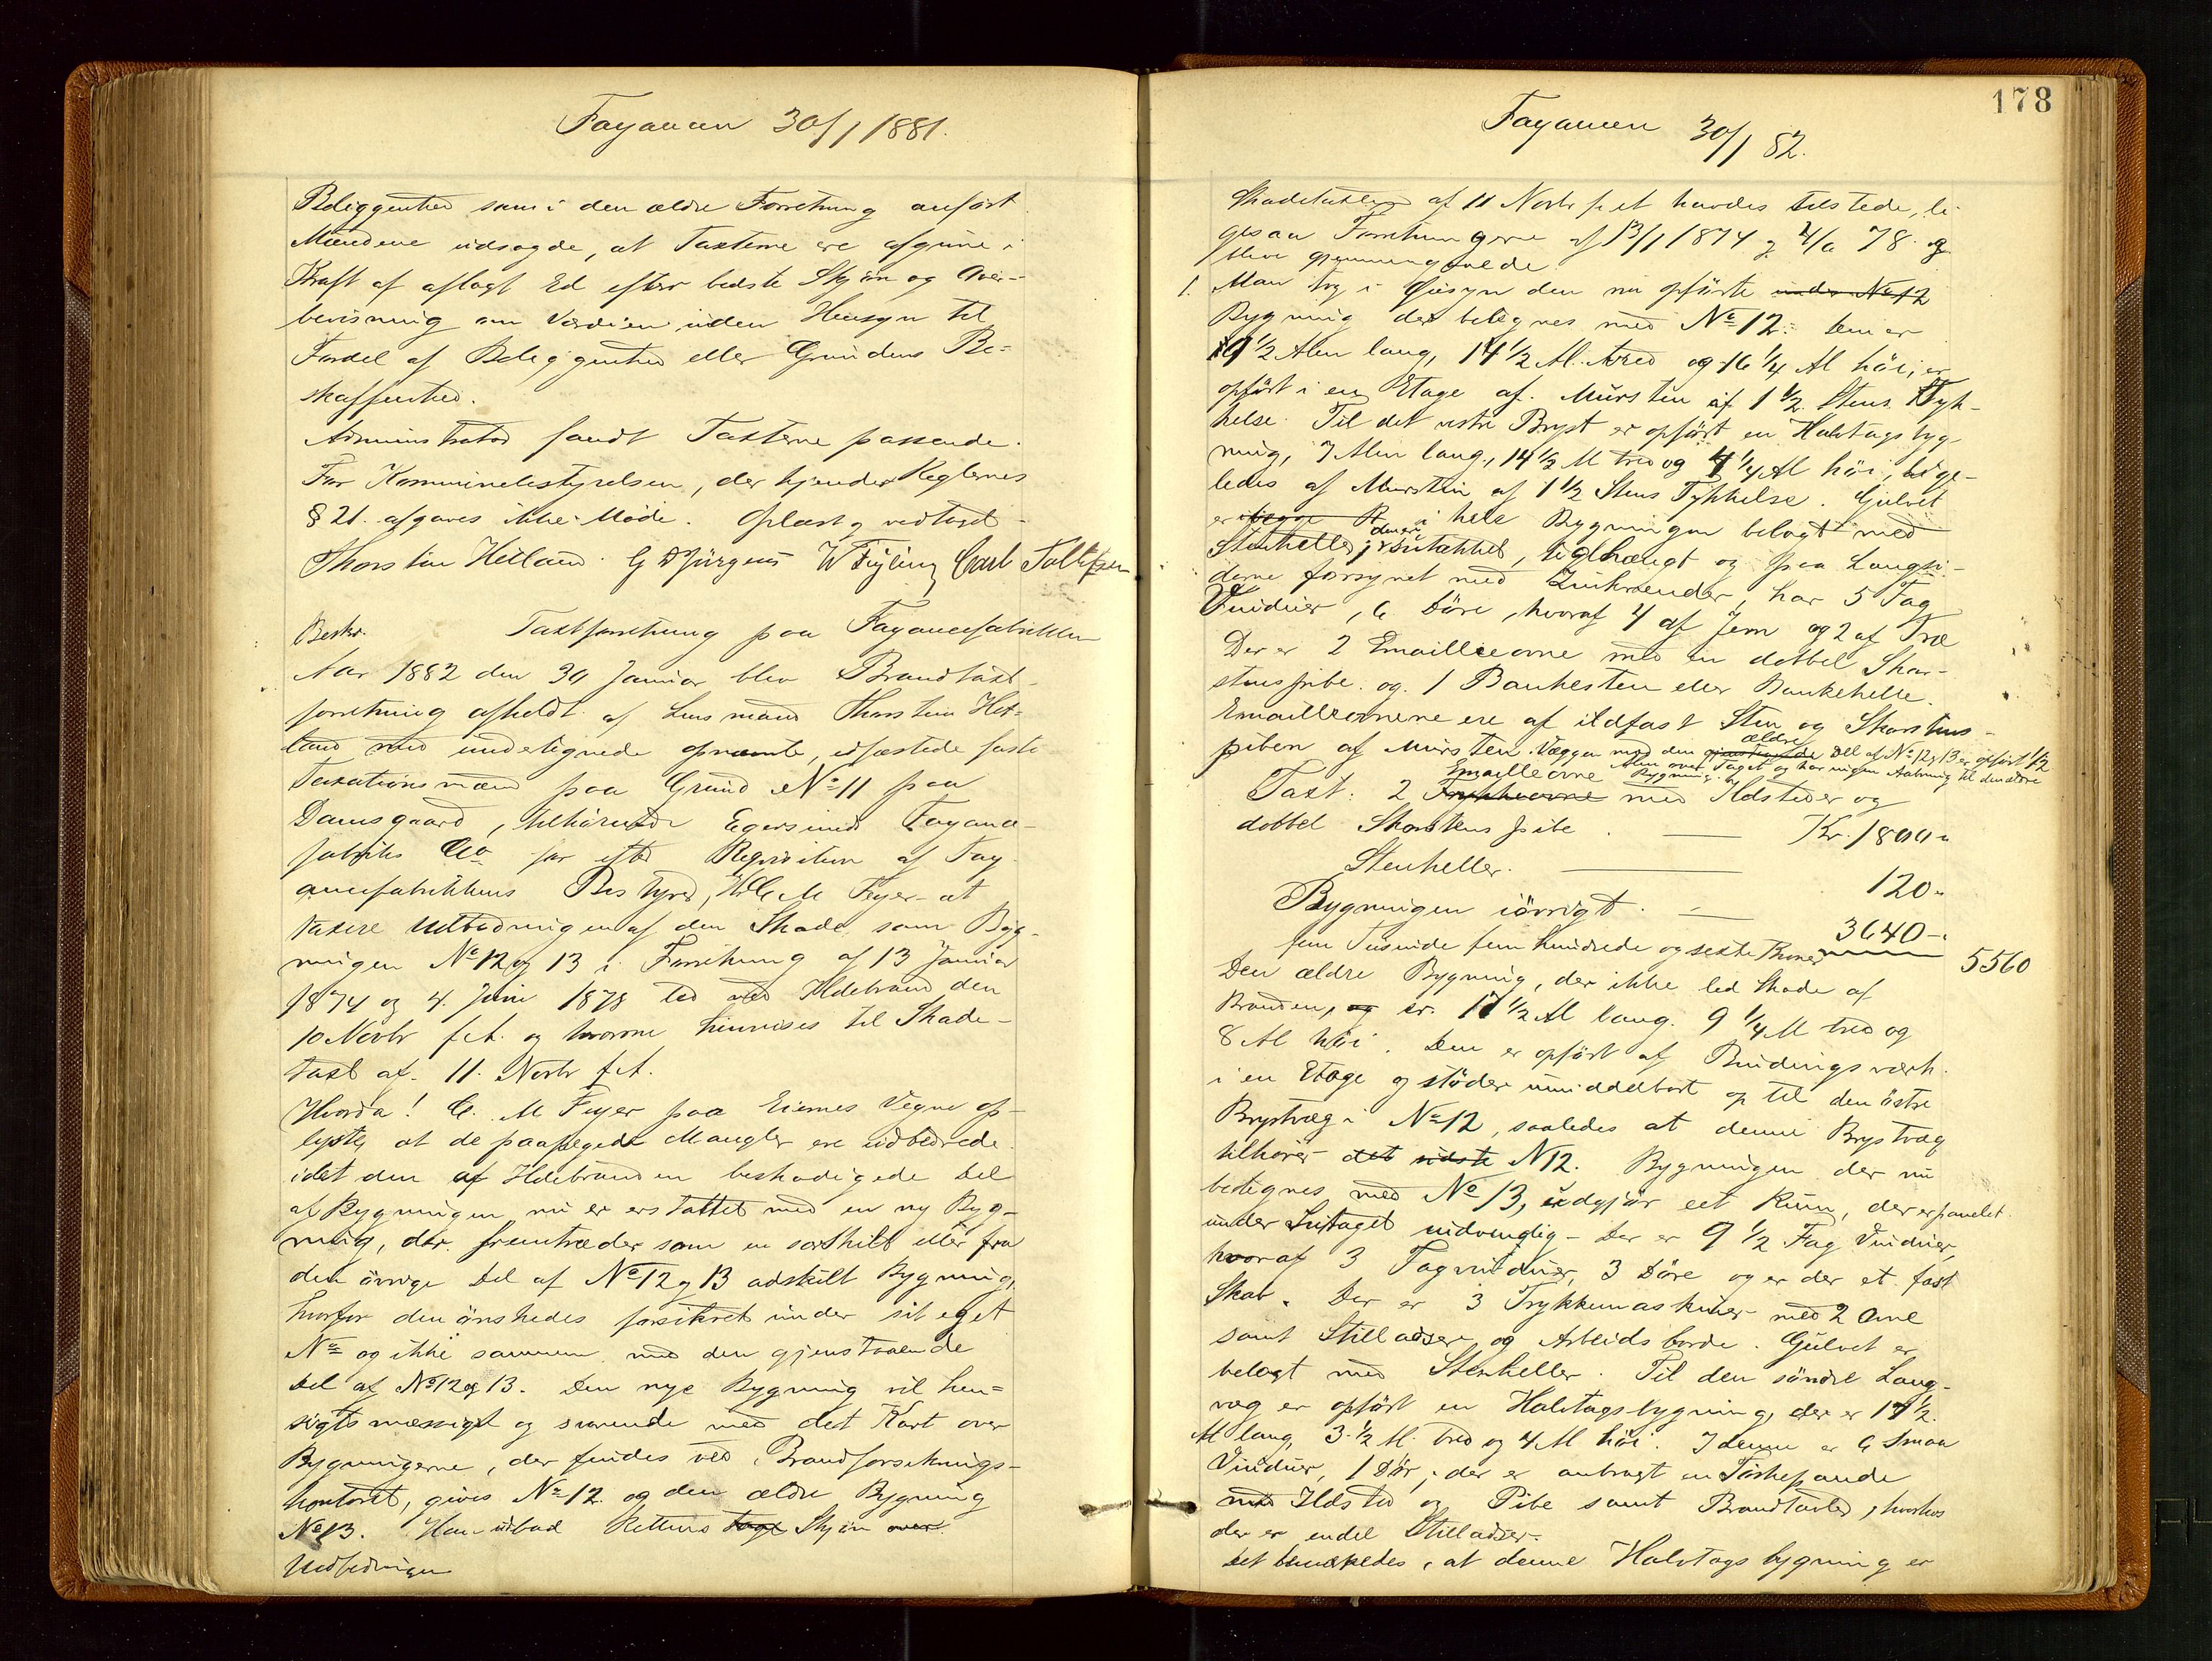 Fayancen 30/1 1881.
Beliggenhed som i den ældre Forretning anført
Mændene udsagde, at Taxterne ere afgivne i
Kraft af aflagt Ed efter bedste Skjøn og Over-
bevisning om Værdien uden Hensyn til
Fordel af Beliggenhed eller Grundens Be-
skaffenhed.
Administrator fandt Taxterne passende.
For Kommunebestyrelsen, der kjender Reglernes
§ 21. afgaves ikke Møde. Oplæst og vedtaget -
Thorstein Hetland. G Djürgens W Füyling Carl Tollefsen
Beskr. Taxtforretning paa Fayancefabrikken
Aar 1882 den 30 Januar blev Brandtaxt-
forretning afholdt af Lensmand Thorstein Het-
land med undertegnede opnævnte, edfæstede faste
Taxationsmænd paa Grund No 11 paa
Damsgaard, tilhørende Egersunds Fayance-
fabriks Co for efter Reqvisition af Fay-
ancefabrikkens Bestyrer, Hr C M Feyer at
taxere Udbedringen af den Skade som Byg-
ningen No 12 og 13 i Forretning af 13 Januar
1874 og 4. Juni 1878 led ved Ildebrand den
10 Novbr f.A. og hvorom henvises til Skade-
taxt af 11. Novbr f.A.
Hvorda! C. M Feyer paa Eiernes Vegne op-
lyste, at de paapegede Mangler ere udbedrede
idet den af Ildebranden beskadigede Del
af Bygningen nu er erstattet med en ny Byg-
ning, der fremtræder som en særskilt eller fra
den øvrige Del af No 12 og 13 adskilt Bygning,
hvorfor den ønskedes forsikret under sit eget
No og ikke sammen med den gjenstaaende
Del af No 12 og 13. Den nye Bygning vil hen-
sigtsmæssigt og svarende med det Kart over
Bygningerne, der findes ved Brandforsikrings-
kontoret, gives No 12 og den ældre Bygning
No 13. Han udbad Rettens tage Skjøn over
Udbedringen
178
Fayancen 30/1 82.
Skadetaxten af 11 Novbr f.A. havdes tilstede, li-
gesaa Forretningerne af 13/1 1874 og 4/6 78. og
blive gjennemgaaede.
1. Man tog i Øiesyn den nu opførte under No 12
Bygning der betegnes med No 12: Den er
19 1/2 Alen lang, 14 1/2 Al. bred og 16 1/4 Al høi; er
opført i en Etage af Mursten af 1 1/2 Stens Tyk-
kelse. Til det vestre Bryst er opført en Halvtagsbyg-
ning, 7 Alen lang, 14 1/2 Al bred og 4 1/4 Al høi, lige-
ledes af Mursten af 1 1/2 Stens Tykkelse. Gulvet
er begge R i hele Bygningen belagt med
Stenheller; den er sutækket, teglhængt og paa Langsi-
derne forsynet med Zinkrender, har 5 Fag
Vinduer, 6 Døre, hvoraf 4 af Jern og 2 af Træ
Der er 2 Emailleovne med en dobbel Skor-
stenspibe og 1 Bankesten eller Bankehelle.
Emailleovnene ere af ildfast Sten og Skorstens-
piben af Mursten. Væggen mod den gjenstaaende ældre Del af No 12 og 13 er opført 1/2
Alen over Taget og har ingen Aabning til den ældre
Bygning.
Taxt: 2 Trykkeovne Emailleovne med Ildsteder og
dobbel Skorstenspibe . —— Kr. 1800 "
Stenheller. —— 120 "
Bygningen iøvrigt. —— 3640 - "
fem Tusinde fem hundrede og sexti Kroner 5560
Den ældre Bygning, der ikke led Skade af
Branden, og er 17 1/2 Al lang. 9 1/4 Al bred og
8 Al høi. Den er opført af Bindingsværk
i en Etage og støder umiddelbart op til den østre
Brystvæg i No 12, saaledes at denne Brystvæg
tilhører det sidste N 12. Bygningen der nu
betegnes med No 13, udgjør eet Rum, der er panelet
under Sutaget indvendig - Der er 9 1/2 Fag Vinduer,
hvoraf 3 Tagvinduer, 3 Døre og er der et fast
Skab. Der er 3 Trykkemaskiner med 2 Ovne
samt Stilladser og Arbeidsborde. Gulvet er
belagt med Stenheller. Til den søndre Lang-
væg er opført en Halvtagsbygning, der er 17 1/2
Al lang, 3 1/2 Al. bred og 4 Al høi. I denne er 6 Smaa
Vinduer, 1 Dør; der er anbragt en Tørkepande
med Ildsted og Pibe samt Brandtavler, hvorhos
der er endel Stilladser.
Det bemærkedes, at denne Halvtagsbygning er